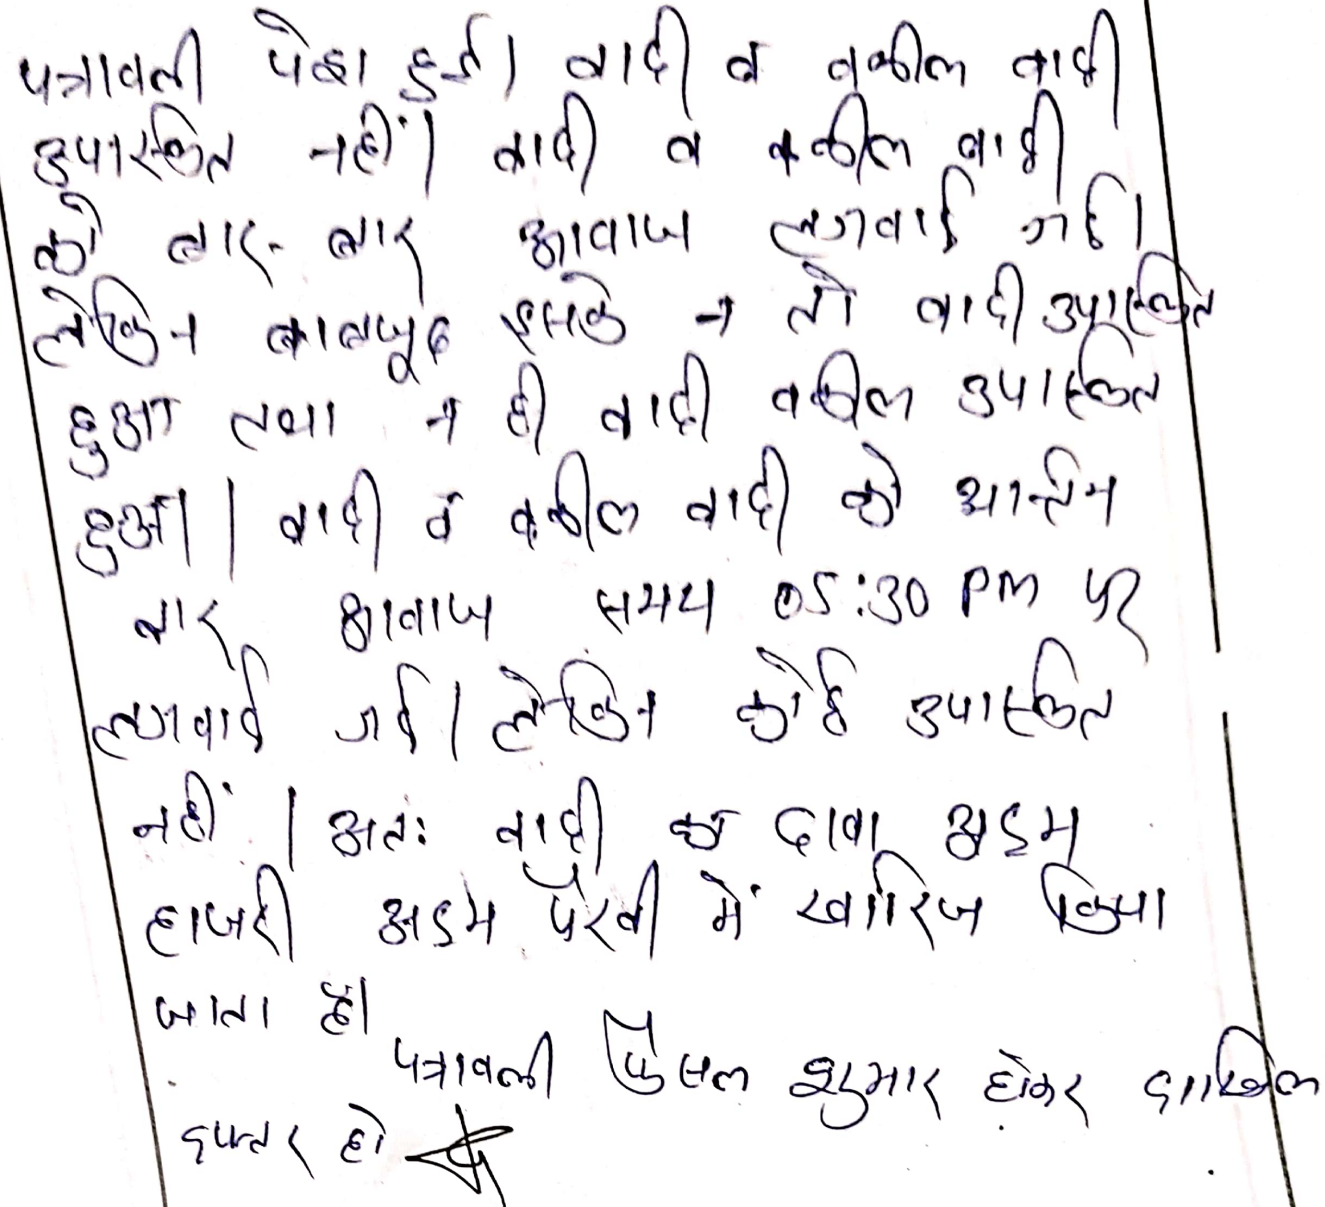 पत्रावली पेश हुई। वादी व वकील वादी
उपस्थित नहीं। वादी व वकील वादी
को बार-बार आवाज लगवाई गई।
लेकिन बावजूद इसके न तो वादी उपस्थित
हुआ तथा न ही वादी वकील उपस्थित
हुआ। वादी व वकील वादी को अन्तिम
बार आवाज समय 05:30 PM पर
लगवाई गई। लेकिन कोई उपस्थित
नहीं। अतः वादी का दावा अदम
हाजरी अदम पैरवी में खारिज किया
जाता है।
पत्रावली फैसल शुमार होकर दाखिल
दफ्तर हो